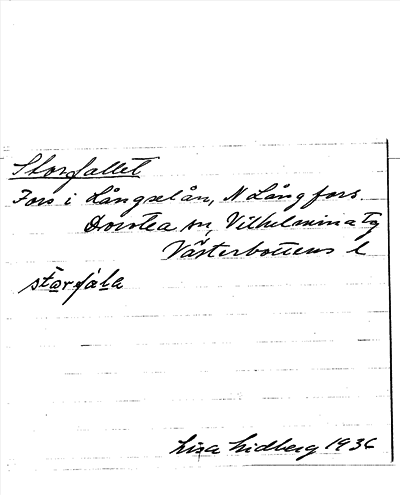 Storfallet
Fors i Långselån, N Långfors
Dorotea sn, Vilhelmina tg
Västerbottens l
stɷrfála
Lisa Lidberg 1936